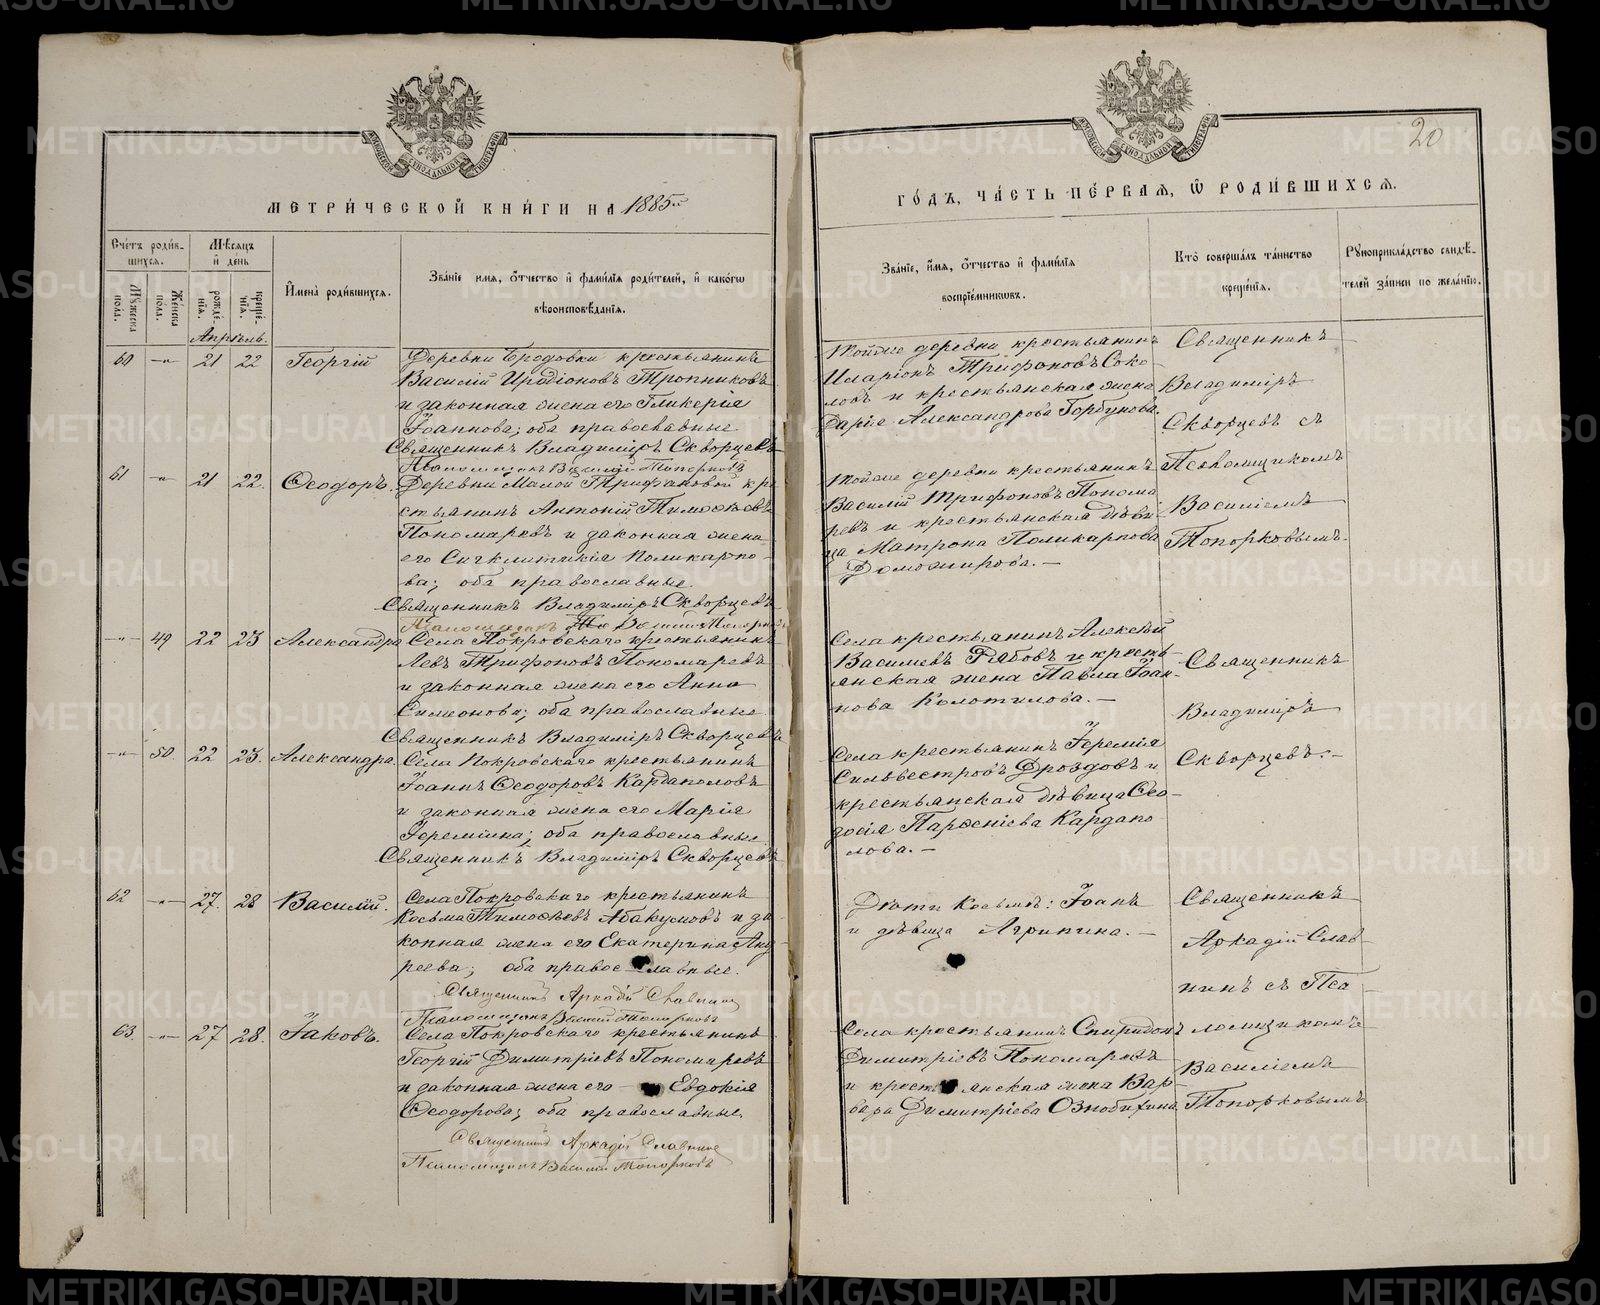 METRIKI.GASO-URAL.RU
20
МЕТРИ́ЧЕСКОЙ КНИ́ГИ НА 1885й
Сче́тъ роди́в-
шихся.
Мѣсяцъ
и҆ день
Мꙋжеска
пола.
Же́нска
пола.
рожде́-
нїѧ.
креще́-
нїѧ.
И҆мена̀ роди́вшихсѧ.
Зва́нїе имѧ, ѻ҆́тчество и҆ фами́лїѧ роди́телей, и҆ како́гѡ
вѣроисповѣ́данїѧ.
Апрѣль.
60 —„— 21 22 Георгій
Деревни Бродовки крестьянинъ
Василій Иродіоновъ Тропниковъ
и законная жена его Гликерія
Іоаннова; оба православные.
Священникъ Владиміръ Скворцевъ
Псаломщикъ Василій Топорковъ
61 —„— 21 22. Ѳеодоръ.
Деревни Малой Трифановой кре
стьянинъ Антоній Тимоѳѣевъ
Пономаревъ и законная жена
его Сигклитикія Поликарпо-
ва; оба православные.
Священникъ Владиміръ Скворцевъ
Псаломщикъ Василій Топорковъ
—„— 49 22 23 Александра
Села Покровскаго крестьянинъ
Левъ Трифоновъ Пономаревъ
и законная жена его Анна
Симеонова; оба православные.
Священникъ Владиміръ Скворцевъ
—„— 50. 22 23. Александра.
Села Покровскаго крестьянинъ
Іоаннъ Ѳеодоровъ Кардаполовъ
и законная жена его Марія
Іереміина; оба православные.
Священникъ Владиміръ Скворцевъ
62 —„— 27. 28 Василій.
Села Покровскаго крестьянинъ
Косьма Тимоѳѣевъ Абакумовъ и за
конная жена его Екатерина Анд
реева; оба православные.
Священникъ Аркадій Славнинъ
Псаломщикъ Василій Топорковъ
63. —„— 27 28. Іаковъ.
Села Покровскаго крестьянинъ
Георгій Димитріевъ Пономаревъ
и законная жена его — Евдокія
Ѳеодорова; оба православные.
Священникъ Аркадій Славнинъ
Псаломщикъ Василій Топорковъ
ГО́ДЪ, ЧА́СТЬ ПЕ́РВАѦ, Ѿ РОДИ́ВШИХСѦ.
Зва́нїе, и҆́мѧ, ѻ҆́тчество и҆ фами́лїѧ
воспрїе́мникѡвъ.
Кто̀ соверша́лъ та́инство
креще́нїѧ.
Рꙋкоприкла́дство свидѣ́-
телей за́писи по жела́нїю.
Тойже деревни крестьянинъ
Иларіонъ Трифоновъ Соко-
ловъ и крестьянская жена
Дарія Александрова Горбунова.
Священникъ
Владиміръ
Скворцевъ съ
Псаломщикомъ
Василіемъ
Топорковымъ.
Тойже деревни крестьянинъ
Василій Трифоновъ Понома
ревъ и крестьянская дѣви-
ца Матрона Поликарпова
Доможирова. —
Села крестьянинъ Алексѣй
Васильевъ Рябовъ и кресть-
янская жена Павла Іоан-
нова Колотилова. —
Священникъ
Владиміръ
Скворцевъ. —
Села крестьянинъ Іеремія
Сильвестровъ Дроздовъ и
крестьянская дѣвица Ѳео-
досія Парѳеніева Кардапо
лова. —
Дѣти Косьмы: Іоанъ
и дѣвица Агрипина. —
Священникъ
Аркадій Слав-
нинъ съ Пса
ломщикомъ
Василіемъ
Топорковымъ
Села крестьянинъ Спиридонъ
Димитріевъ Пономаревъ
и крестьянская жена Вар-
вара Димитріева Ознобихина.